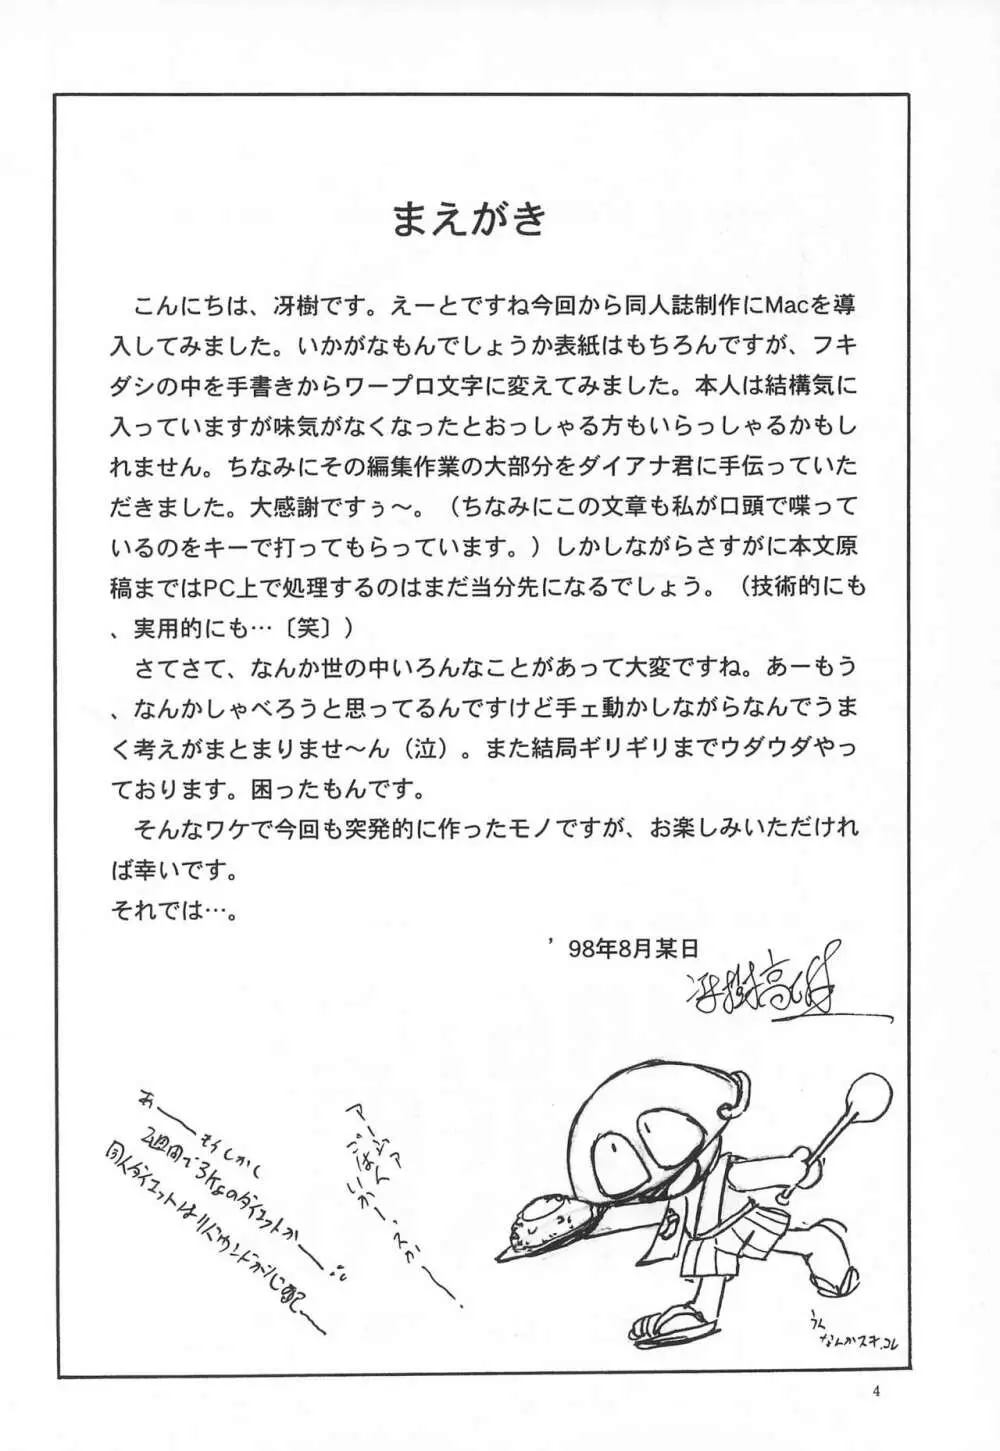 まえがき
　こんにちは、冴樹です。えーとですね今回から同人誌制作にMacを導
入してみました。いかがなもんでしょうか表紙はもちろんですが、フキ
ダシの中を手書きからワープロ文字に変えてみました。本人は結構気に
入っていますが味気がなくなったとおっしゃる方もいらっしゃるかもし
れません。ちなみにその編集作業の大部分をダイアナ君に手伝っていた
だきました。大感謝ですぅ〜。（ちなみにこの文章も私が口頭で喋って
いるのをキーで打ってもらっています。）しかしながらさすがに本文原
稿まではPC上で処理するのはまだ当分先になるでしょう。（技術的にも
、実用的にも…〔笑〕）
　さてさて、なんか世の中いろんなことがあって大変ですね。あーもう
、なんかしゃべろうと思ってるんですけど手ェ動かしながらなんでうま
く考えがまとまりませ〜ん（泣）。また結局ギリギリまでウダウダやっ
ております。困ったもんです。
　そんなワケで今回も突発的に作ったモノですが、お楽しみいただけれ
ば幸いです。
それでは…。
’98年8月某日
冴樹高雄
アージアア
ごはん
いかーっスかー、
あーー
もしかし
2週間で3kgのダイエットかーー
同人ダイエットはリバウンドが心配〜
うん
なんかスキ、コレ
4